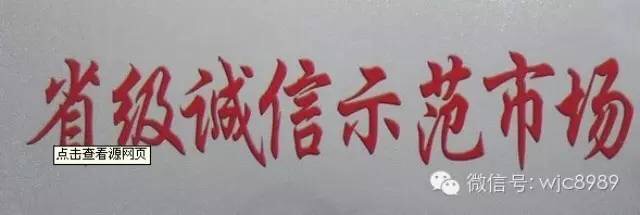 省级诚信示范市场
点击查看源网页
微信号: wjc8989